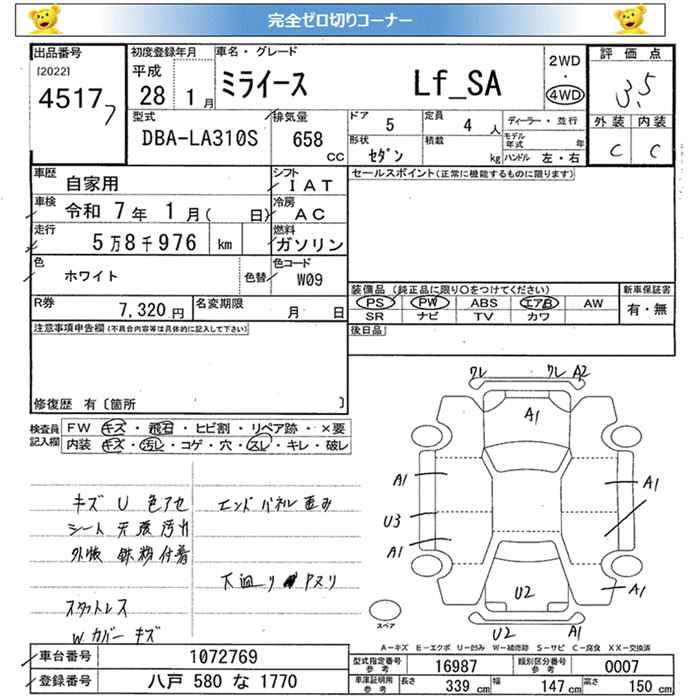 完全ゼロ切りコーナー
出品番号 初度登録年月 車名・グレード 2WD 評価点
[2022] 平成 ・
4517 28 1月 ミライース Lf_SA 4WD 3.5
型式 排気量 ドア 5 定員 4 人 ディーラー・並行 外装 内装
DBA-LA310S 658 CC 形状 セダン 積載 kg モデル年式 年 C C
ハンドル 左・右
車歴 自家用 シフト IAT セールスポイント(正常に機能するものに限ります)
車検 令和 7年 1月( 日) 冷房 AC
走行 5万8千976 km 燃料 ガソリン
色 ホワイト 色替 色コード W09
装備品(純正品に限り○をつけてください) 新車保証書
PS PW ABS エアB AW 有・無
R券 7,320円 名変期限 月 日 SR ナビ TV カワ
注意事項申告欄(不具合内容等は具体的に記入して下さい) 後日品
修復歴 有〔箇所 〕
検査員記入欄 FW キズ・飛石・ヒビ割・リペア跡・×要
内装 キズ・汚れ・コゲ・穴・スレ・キレ・破レ
ワレ ワレ A2
A1
A1 A1
U3
A1 A1
U2
U2 A1
キズ U 色アセ エンドパネル歪み
シート 天張 汚れ
外板 鉄粉付着
下廻り Pヌリ
スタットレス
W カバー キズ
スペア
A－キズ E－エクボ U－凹み W－補修跡 S－サビ C－腐食 XX－交換済
車台番号 1072769 型式指定番号 参考 16987 類別区分番号 参考 0007
登録番号 八戸 580 な 1770 車庫証明用 参考 長さ 339 cm 幅 147 cm 高さ 150 cm